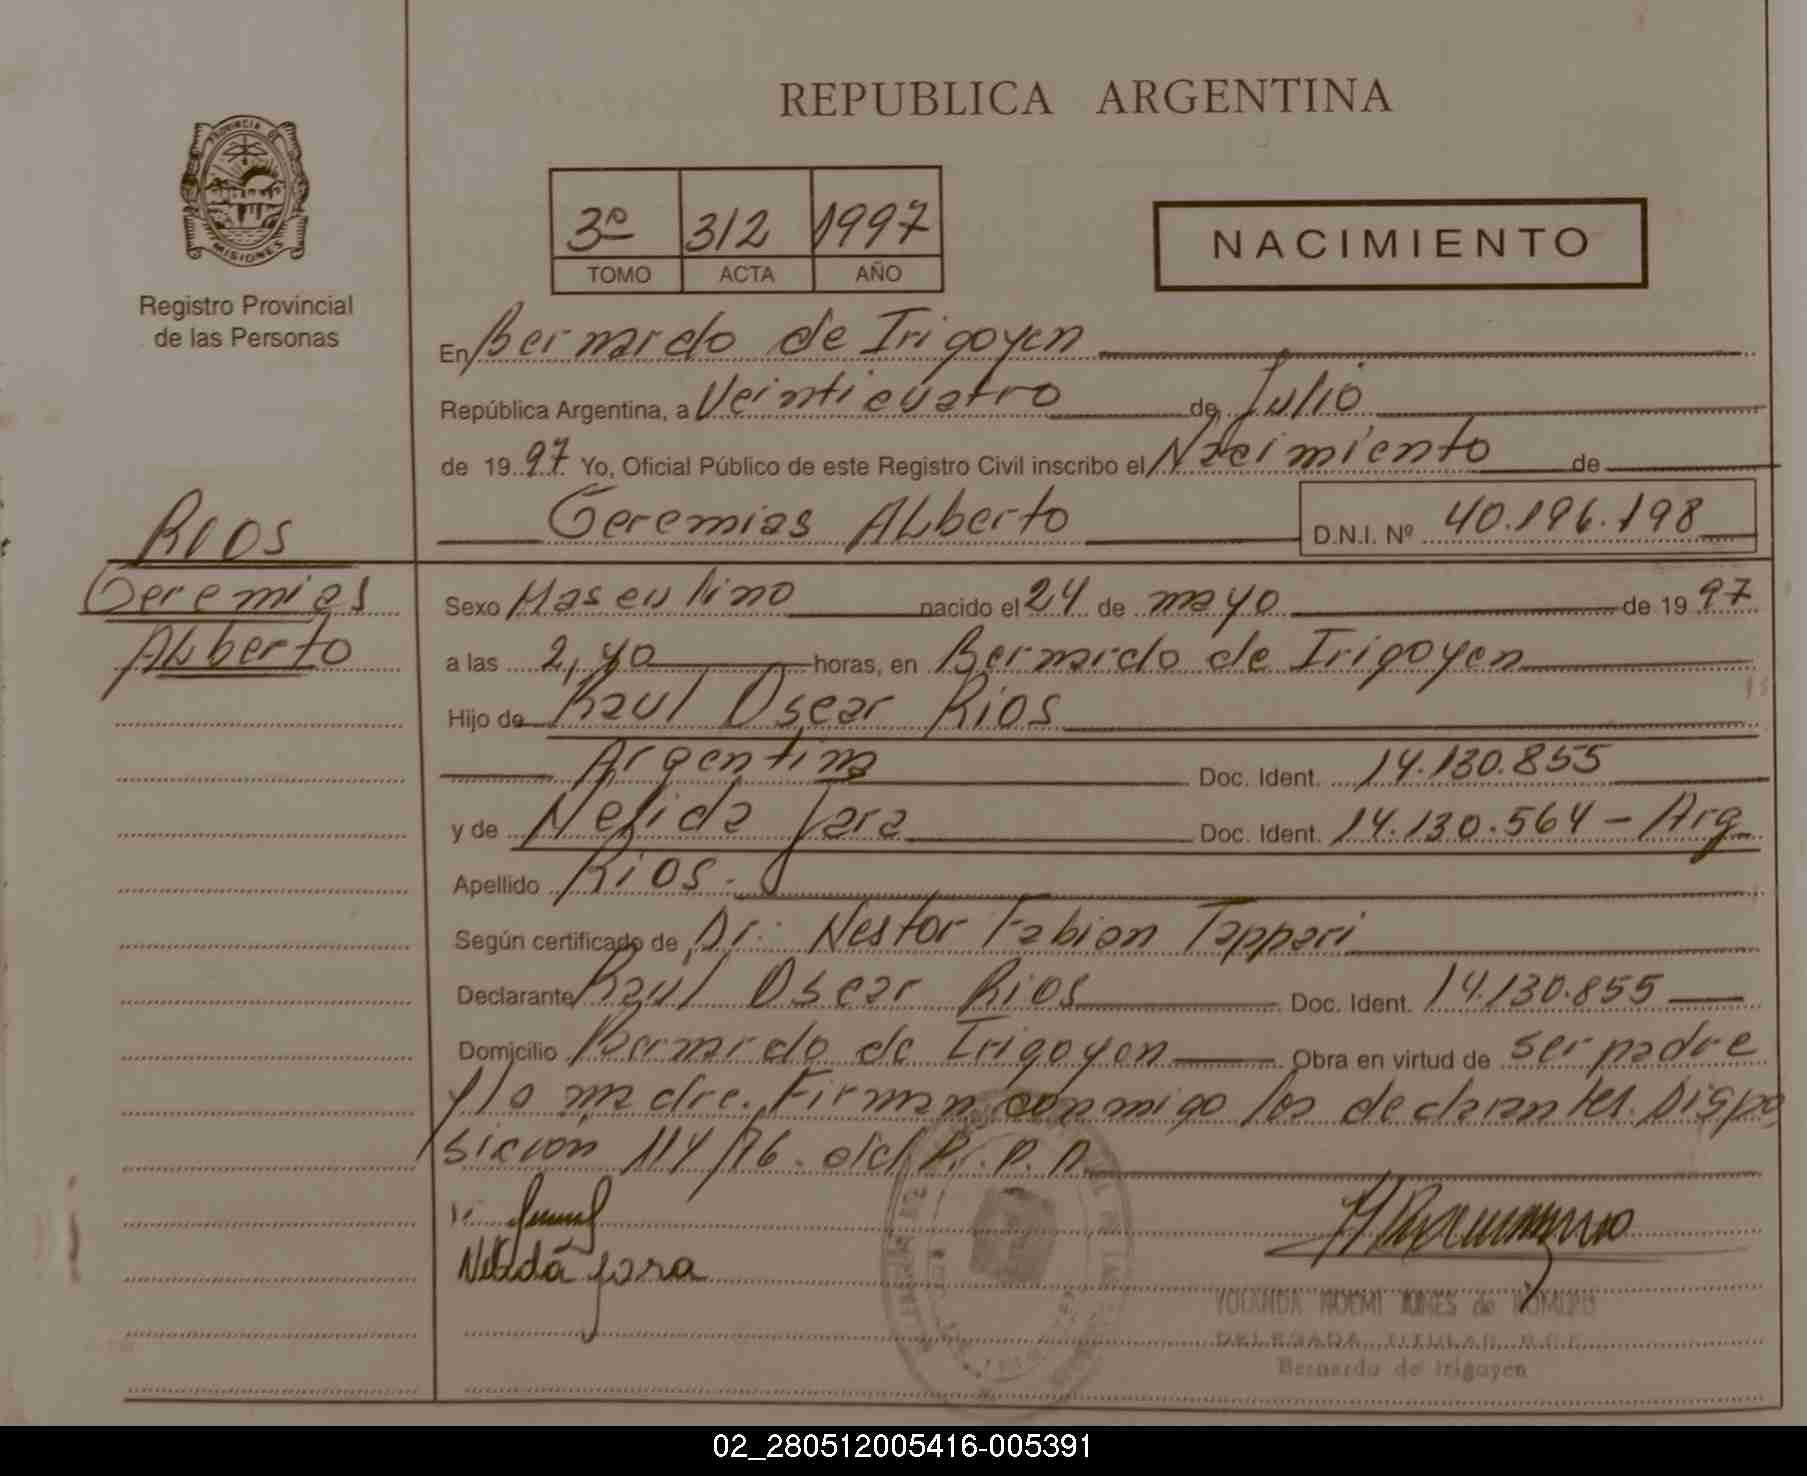 REPUBLICA ARGENTINA
PROVINCIA DE
MISIONES
Registro Provincial
de las Personas
3º 312 1997
TOMO ACTA AÑO
NACIMIENTO
En Bernardo de Irigoyen
República Argentina, a Veinticuatro de Julio
de 1997 Yo, Oficial Público de este Registro Civil inscribo el Nacimiento de
Geremias ALberto D.N.I. Nº 40.196.198
RIOS
Geremias
ALberto
Sexo Masculino nacido el 24 de mayo de 1997
a las 2,40 horas, en Bernardo de Irigoyen
Hijo de Raul Oscar Rios
Argentina Doc. Ident. 14.130.855
y de Nelida Jara Doc. Ident. 14.130.564 - Arg
Apellido Rios.
Según certificado de Dr. Nestor Fabian Tappari
Declarante Raul Oscar Rios Doc. Ident. 14.130.855
Domicilio Bernardo de Irigoyen Obra en virtud de ser padre
y la madre. Firman conmigo los declarantes. Dispo
sición 114/76. del R.P.P.
Nelida Jara
YOLANDA NOEMI de ROMERO
DELEGADA TITULAR R.C.P.
Bernardo de Irigoyen
02_280512005416-005391